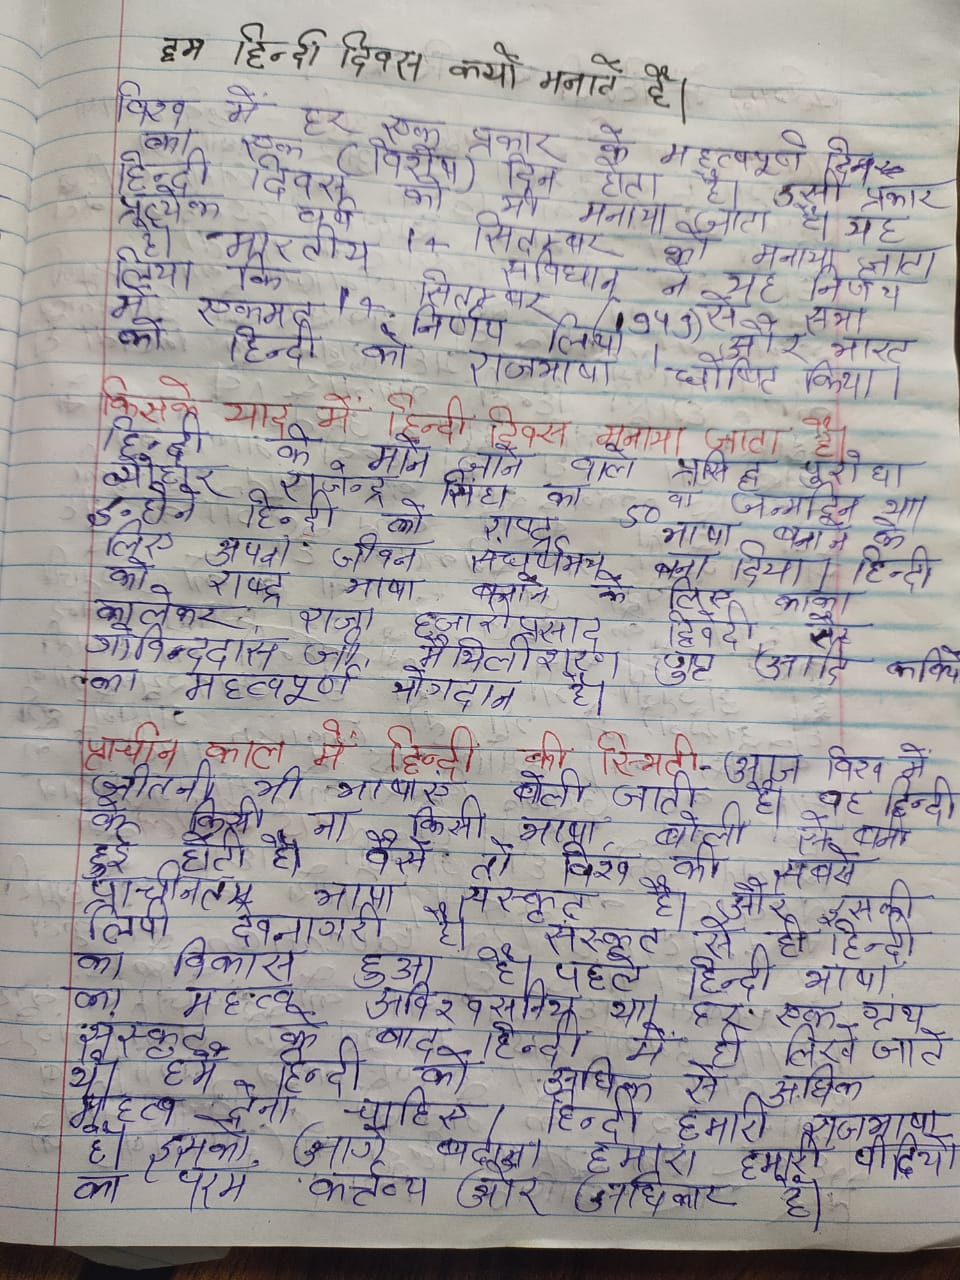 हम हिन्दी दिवस क्यों मनाते है।
विश्व में हर एक प्रकार के महत्वपूर्ण दिवस
का एक (विशेष) दिन होता है। उसी प्रकार
हिन्दी दिवस को भी मनाया जाता है। यह
प्रत्येक वर्ष 14 सितम्बर को मनाया जाता
है। भारतीय संविधान ने यह निर्णय
लिया कि 14 सितम्बर (1949) से सभा
में एकमत निर्णय लिया। और भारत
की हिन्दी को राजभाषा घोषित किया।
किसके याद में हिन्दी दिवस मनाया जाता है।
हिन्दी के माने जाने वाले प्रसिद्ध पुरोधा
व्यौहार राजेन्द्र सिंहा का 50 वा जन्मदिन था
इन्होने हिन्दी को राष्ट्र भाषा बनाने के
लिए अपना जीवन संघर्षमय बना दिया। हिन्दी
को राष्ट्र भाषा बनाने के लिए काका
कालेकर, राजा हजारीप्रसाद द्विवेदी सेठ
गोविन्ददास जी, मैथिलीशरण गुप्त आदि कवियो
का महत्वपूर्ण योगदान है।
प्राचीन काल में हिन्दी की स्थिती- आज विश्व में
जीतनी भी भाषाए बोली जाती है। वह हिन्दी
के किसी ना किसी भाषा, बोली से बनी
हुई होती है। वैसे तो विश्व की सबसे
प्राचीनतम भाषा संस्कृत है। और इसकी
लिपी देवनागरी है। संस्कृत से ही हिन्दी
का विकास हुआ है। पहले हिन्दी भाषा
का महत्व अविश्वसनिय था। हर एक ग्रंथ
संस्कृत के बाद हिन्दी में ही लिखे जाते
थे। हमे हिन्दी को अधिक से अधिक
महत्व देना चाहिए। हिन्दी हमारी राजभाषा
है। इसको आगे बढ़ाना हमारा हमारी पीढ़ियो
का परम कर्तव्य और अधिकार है।